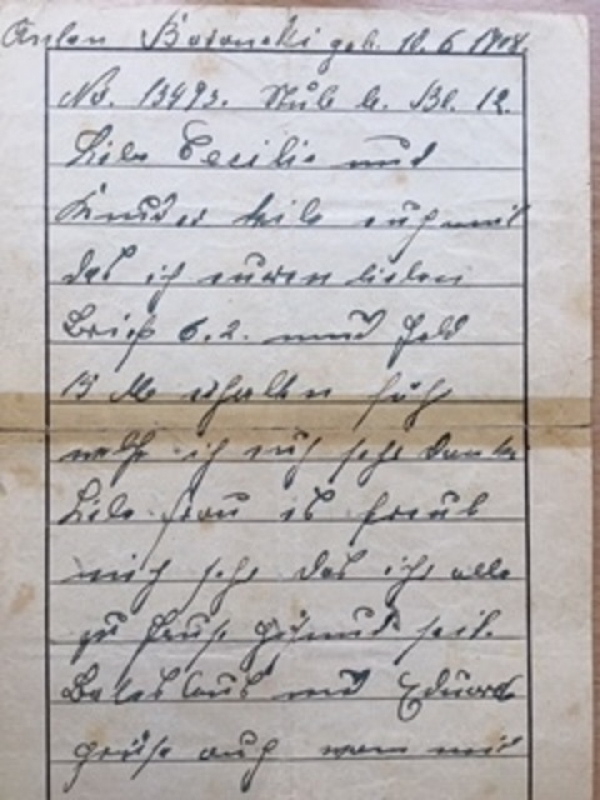 Anton Bosonski geb. 10. 6 1908.
No. 13493. Stube b. Bl. 12.
Liebe Cecilie und
Kinder teile euch mit
das ich euren lieben
Brief 6.2. und Geld
15 M erhalten habe
welche ich euch sehr danke
Liebe Frau es freut
mich sehr das ihr alle
zu Hause gesund seit.
Boleslaus und Eduard
grüse auch von mir